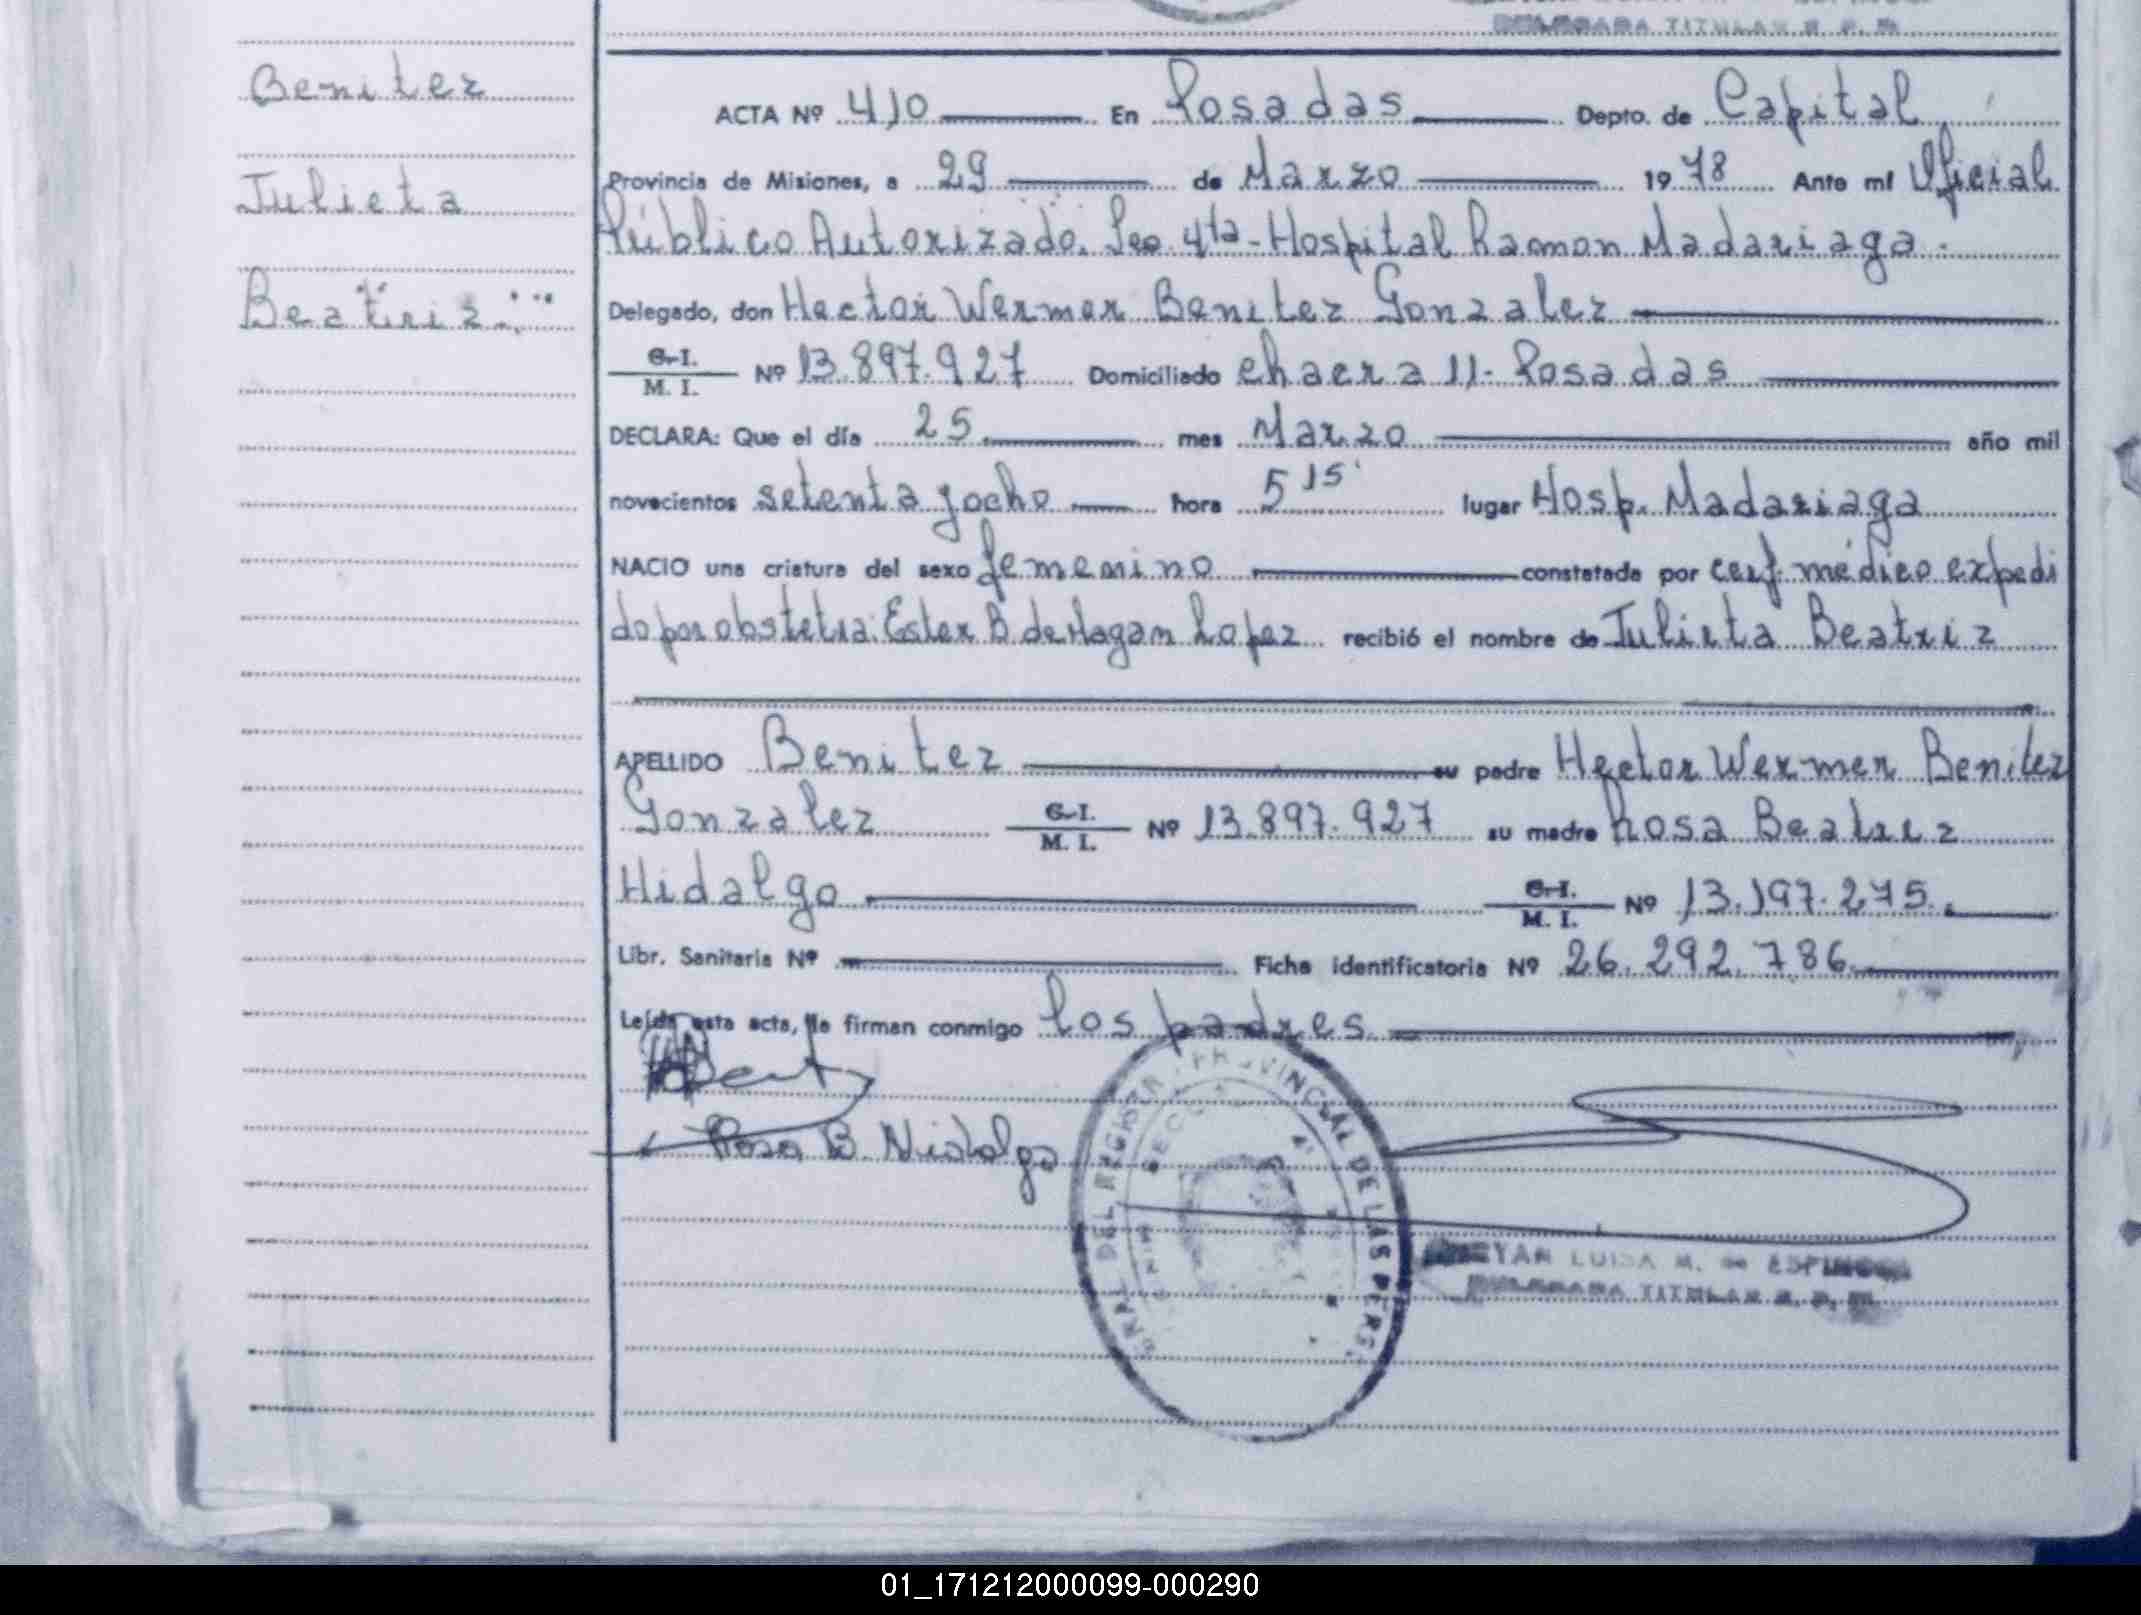 DELEGADA TITULAR R. P. M.
Benitez
Julieta
Beatriz
ACTA Nº 410 En Posadas Depto. de Capital
Provincia de Misiones, a 29 de Marzo 1978 Ante mí Oficial
Público Autorizado. Sec 4ta - Hospital Ramon Madariaga.
Delegado, don Hector Wermer Benitez Gonzalez
C. I.
M. I. Nº 13.897.927 Domiciliado chacra 11 - Posadas
DECLARA: Que el día 25 mes Marzo año mil
novecientos setenta y ocho hora 5 15' lugar Hosp. Madariaga
NACIO una criatura del sexo femenino constatada por cert. médico expedi
do por obstetra. Ester B. de Hagan Lopez recibió el nombre de Julieta Beatriz
APELLIDO Benitez su padre Hector Wermer Benitez
Gonzalez C. I.
M. I. Nº 13.897.927 su madre Rosa Beatriz
Hidalgo C. I.
M. I. Nº 13.197.275.
Libr. Sanitaria Nº Ficha identificatoria Nº 26.292.786
Leída esta acta, la firman conmigo los padres
Rosa B. Hidalgo
DEL REGISTRO PROVINCIAL DE LAS PERS
LUISA M. de ESPINOZA
DELEGADA TITULAR R. P. M.
01_171212000099-000290